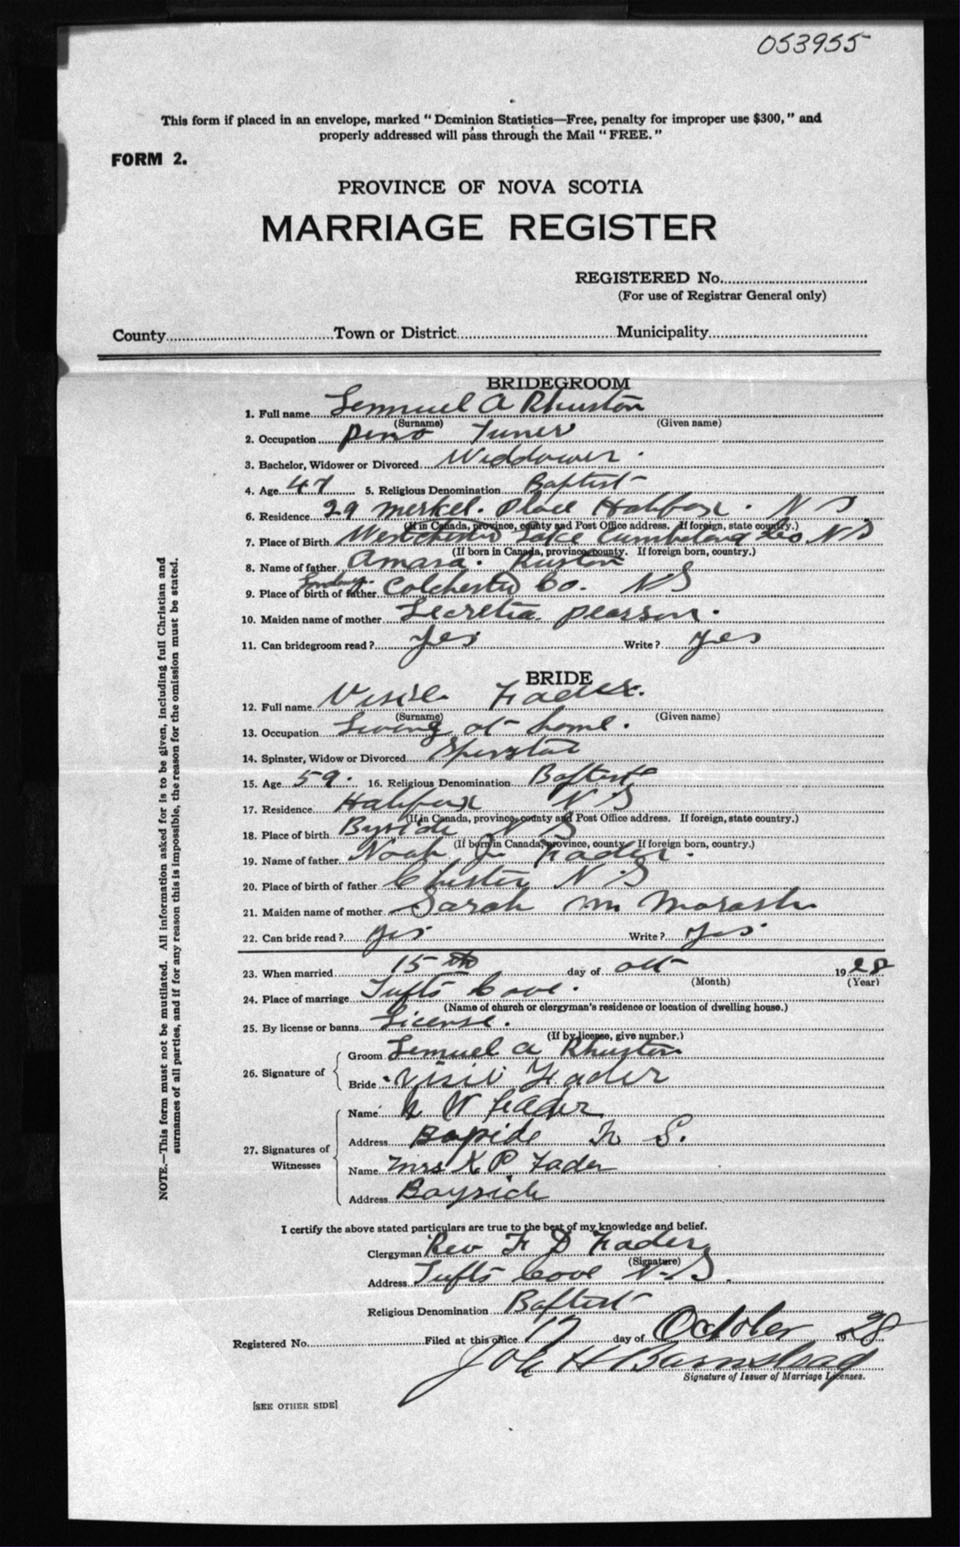 053955
This form if placed in an envelope, marked "Dominion Statistics—Free, penalty for improper use $300," and
properly addressed will pass through the Mail "FREE."
FORM 2.
PROVINCE OF NOVA SCOTIA
MARRIAGE REGISTER
REGISTERED No.
(For use of Registrar General only)
County Town or District Municipality
BRIDEGROOM
1. Full name Lemuel A Rhuston
(Surname) (Given name)
2. Occupation Pino Tuner
3. Bachelor, Widower or Divorced Widdower.
4. Age 47 5. Religious Denomination Baptist
6. Residence 29 Merkel. Place Halifax. N S
(If in Canada, province, county and Post Office address. If foreign, state country.)
7. Place of Birth Westchester Lake Cumberland Co N S
(If born in Canada, province, county. If foreign born, country.)
8. Name of father Amasa. Ruston
9. Place of birth of father Londay. Colchester Co. N S
10. Maiden name of mother Lecretia Pearson.
11. Can bridegroom read? yes Write? yes
BRIDE
12. Full name Visie Fader.
(Surname) (Given name)
13. Occupation Living at home.
14. Spinster, Widow or Divorced Spinster
15. Age 59. 16. Religious Denomination Baptist
17. Residence Halifax N S
(If in Canada, province, county and Post Office address. If foreign, state country.)
18. Place of birth Byside N S
(If born in Canada, province, county. If foreign born, country.)
19. Name of father Noah J. Fader.
20. Place of birth of father Chester N.S
21. Maiden name of mother Sarah M Marash
22. Can bride read? yes Write? yes.
23. When married 15th day of Oct 1928
(Month) (Year)
24. Place of marriage Tufts Cove.
(Name of church or clergyman's residence or location of dwelling house.)
25. By license or banns License.
(If by license, give number.)
26. Signature of Groom Lemuel A Rhuston
Bride Visie Fader
27. Signatures of Witnesses Name N W Fader
Address Bayside N S.
Name Mrs K P. Fader
Address Bayside
I certify the above stated particulars are true to the best of my knowledge and belief.
Clergyman Rev F D Fader
(Signature)
Address Tufts Cove N.S.
Religious Denomination Baptist
Registered No. Filed at this office 17 day of October 1928
Signature of Issuer of Marriage Licenses.
[SEE OTHER SIDE]
NOTE.—This form must not be mutilated. All information asked for is to be given, including full Christian and
surnames of all parties, and if for any reason this is impossible, the reason for the omission must be stated.